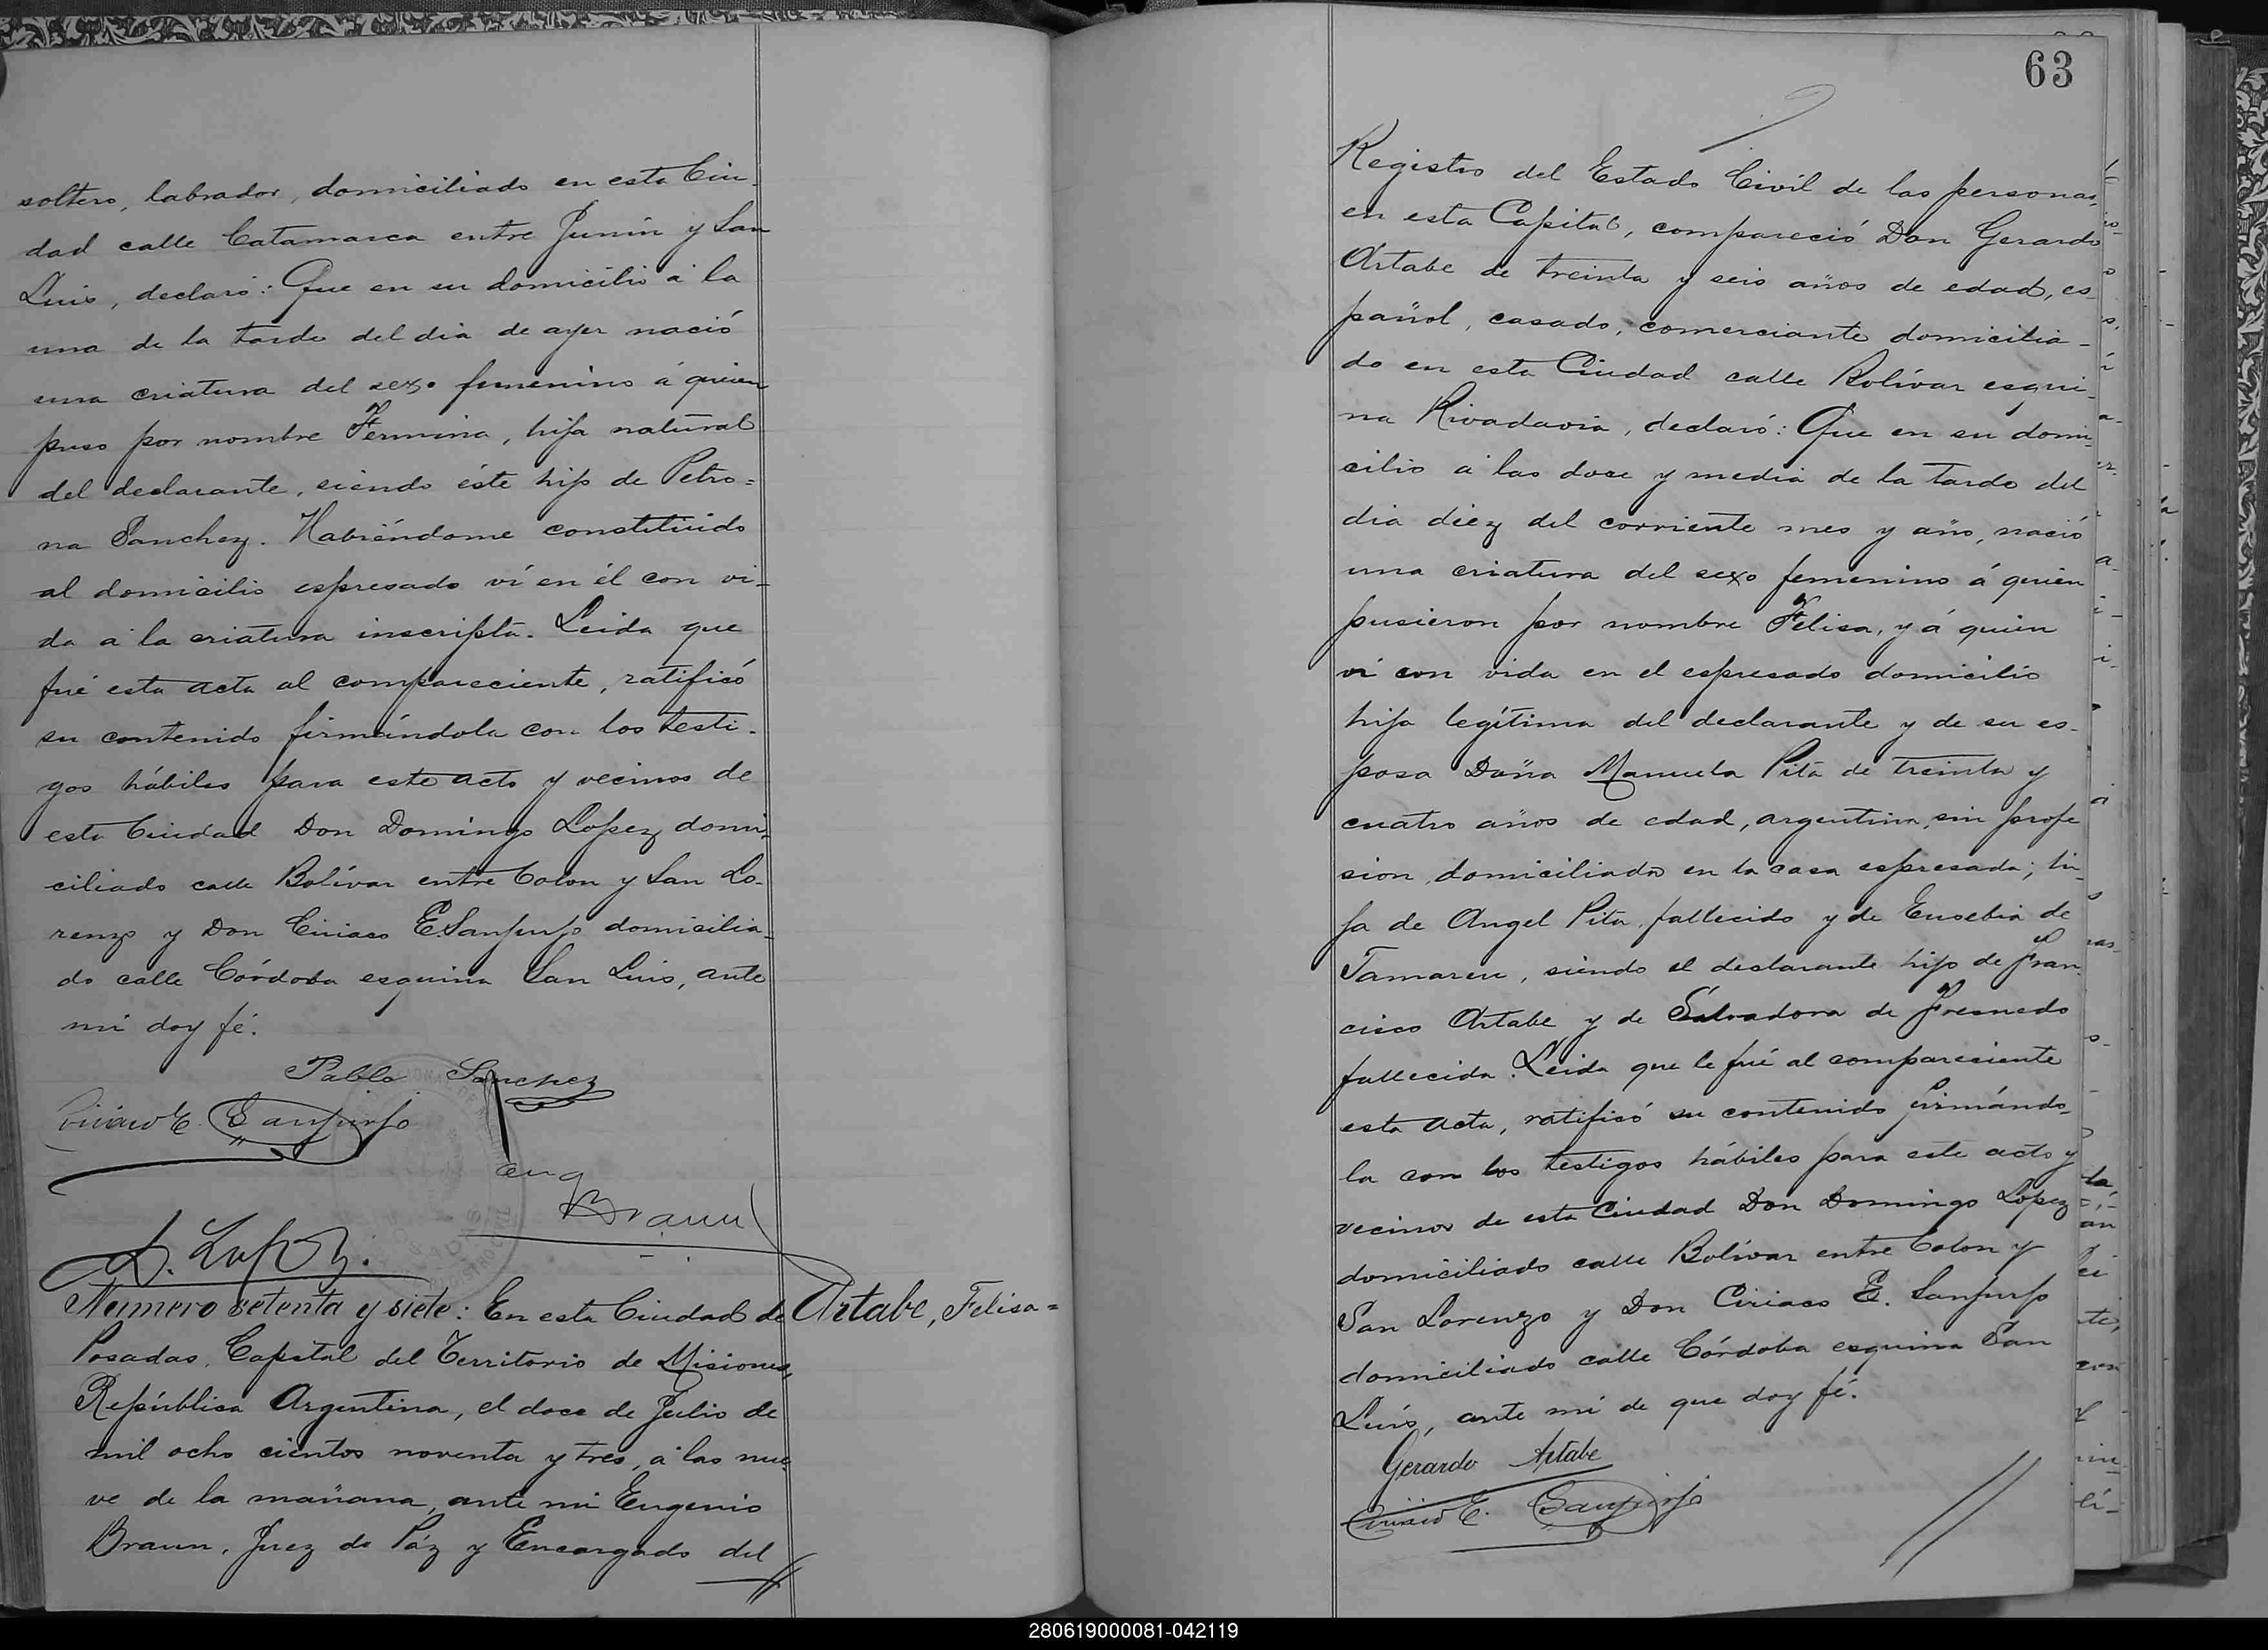 soltero, labrador, domiciliado en esta Ciu-
dad calle Catamarca entre Junin y San
Luis, declaró: Que en su domicilio á la
una de la tarde del dia de ayer nació
una criatura del sexo femenino á quien
puso por nombre Fermina, hija natural
del declarante, siendo éste hijo de Petro=
na Sanchez. Habiéndome constituido
al domicilio espresado ví en él con vi-
da á la criatura inscripta. Leida que
fué esta acta al compareciente, ratificó
su contenido firmándola con los testi-
gos hábiles para este acto y vecinos de
esta Ciudad Don Domingo Lopez domi-
ciliado calle Bolívar entre Colon y San Lo-
renzo y Don Ciriaco E. Sanjurjo domicilia-
do calle Córdoba esquina San Luis, ante
mi doy fé.
Pablo Sanchez
Ciriaco E. Sanjurjo
Eug
Braun
D. Lopez.
Numero setenta y siete: En esta Ciudad de
Artabe, Felisa=
Posadas, Capital del Territorio de Misiones,
República Argentina, el doce de Julio de
mil ocho cientos noventa y tres, á las nue-
ve de la mañana, ante mi Eugenio
Braun, Juez de Páz y Encargado del
63
Registro del Estado Civil de las personas,
en esta Capital, compareció Don Gerardo
Artabe de treinta y seis años de edad, es-
pañol, casado, comerciante domicilia-
do en esta Ciudad calle Bolívar esqui-
na Rivadavia, declaró: Que en su domi-
cilio á las doce y media de la tarde del
dia diez del corriente mes y año, nació
una criatura del sexo femenino á quien
pusieron por nombre Felisa, y á quien
ví con vida en el espresado domicilio
hija legítima del declarante y de su es-
posa Doña Manuela Pita de treinta y
cuatro años de edad, argentina, sin profe
sion, domiciliada en la casa espresada; hi-
ja de Angel Pita, fallecido y de Eusebia de
Tamareu, siendo el declarante hijo de Fran
cisco Artabe y de Salvadora de Fresnedo
fallecida. Leida que le fué al compareciente
esta acta, ratificó su contenido firmándo-
la con los testigos hábiles para este acto y
vecinos de esta Ciudad Don Domingo Lopez
domiciliado calle Bolívar entre Colon y
San Lorenzo y Don Ciriaco E. Sanjurjo
domiciliado calle Córdoba esquina San
Luis, ante mi de que doy fé.
Gerardo Artabe
Ciriaco E. Sanjurjo
280619000081-042119